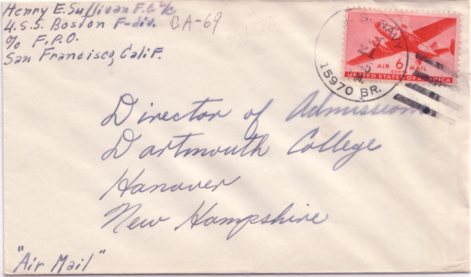 Henry E. Sullivan F.C. 2/c
U.S.S. Boston F-div.
CA-69
c/o F.P.O.
San Francisco, Calif.
U.S. NAVY
15970 BR.
AIR 6 MAIL
CENTS
UNITED STATES OF AMERICA
Director of Admissions
Dartmouth College
Hanover
New Hampshire
"Air Mail"